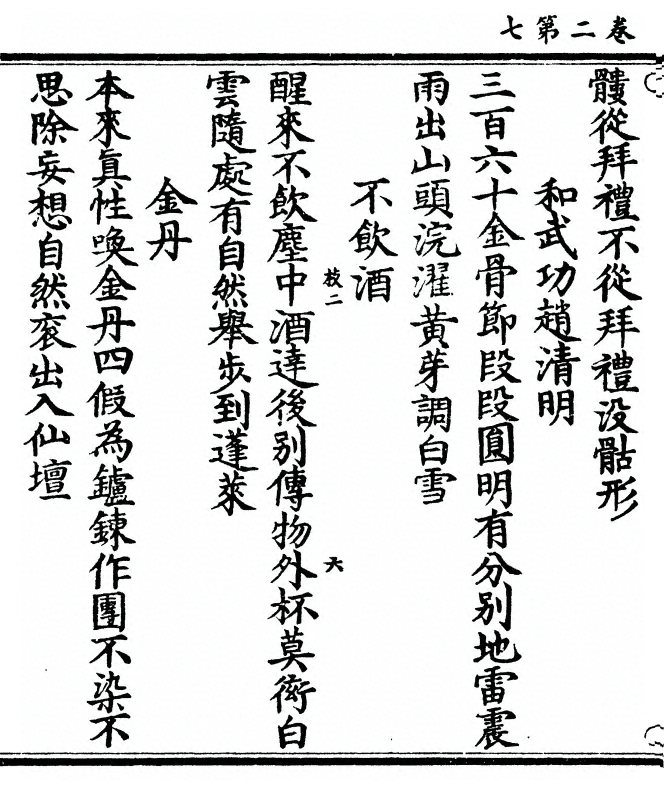 卷二第七
髏從拜禮不從拜禮没骷形
和武功趙清明
三百六十金骨節段段圓明有分别地雷震
雨出山頭浣濯黄芽調白雪
不飲酒
枝二
六
醒來不飲塵中酒達後别傳物外杯莫衒白
雲隨處有自然舉步到蓬萊
金丹
本來真性喚金丹四假為鑪鍊作團不染不
思除妄想自然衮出入仙壇